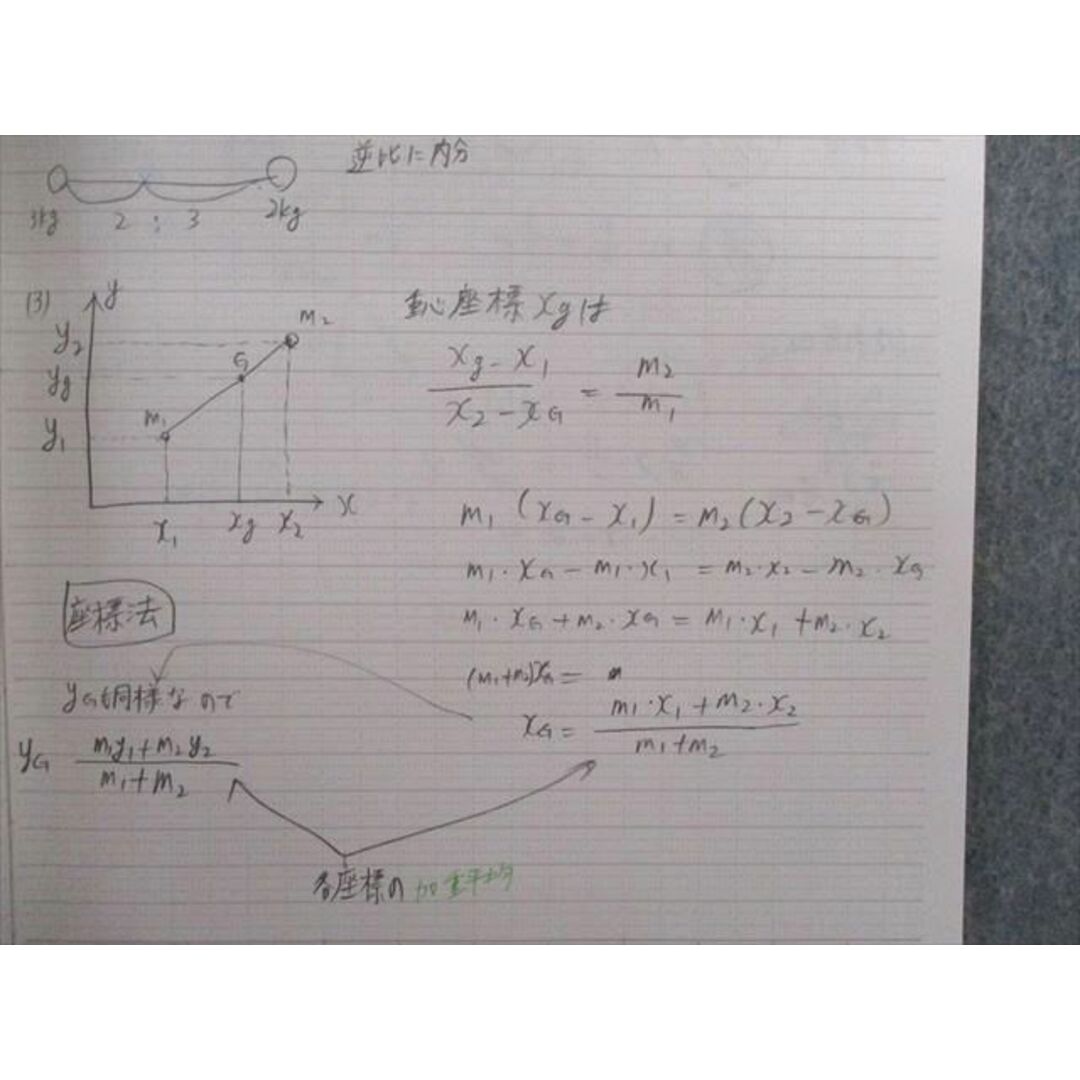 逆比に内分
3kg 2 : 3 2kg
(3) y
重心座標 xgは
m2
y2
G
yg
m1
y1
x1 xg x2 x
(xg - x1)/(x2 - xG) = m2/m1
m1 (xG - x1) = m2 (x2 - xG)
m1・xG - m1・x1 = m2・x2 - m2・xG
m1・xG + m2・xG = m1・x1 + m2・x2
座標法
(m1+m2)xG = 〃
xG = (m1・x1 + m2・x2)/(m1+m2)
yGも同様なので
yG (m1y1 + m2y2)/(m1+m2)
各座標の加重平均